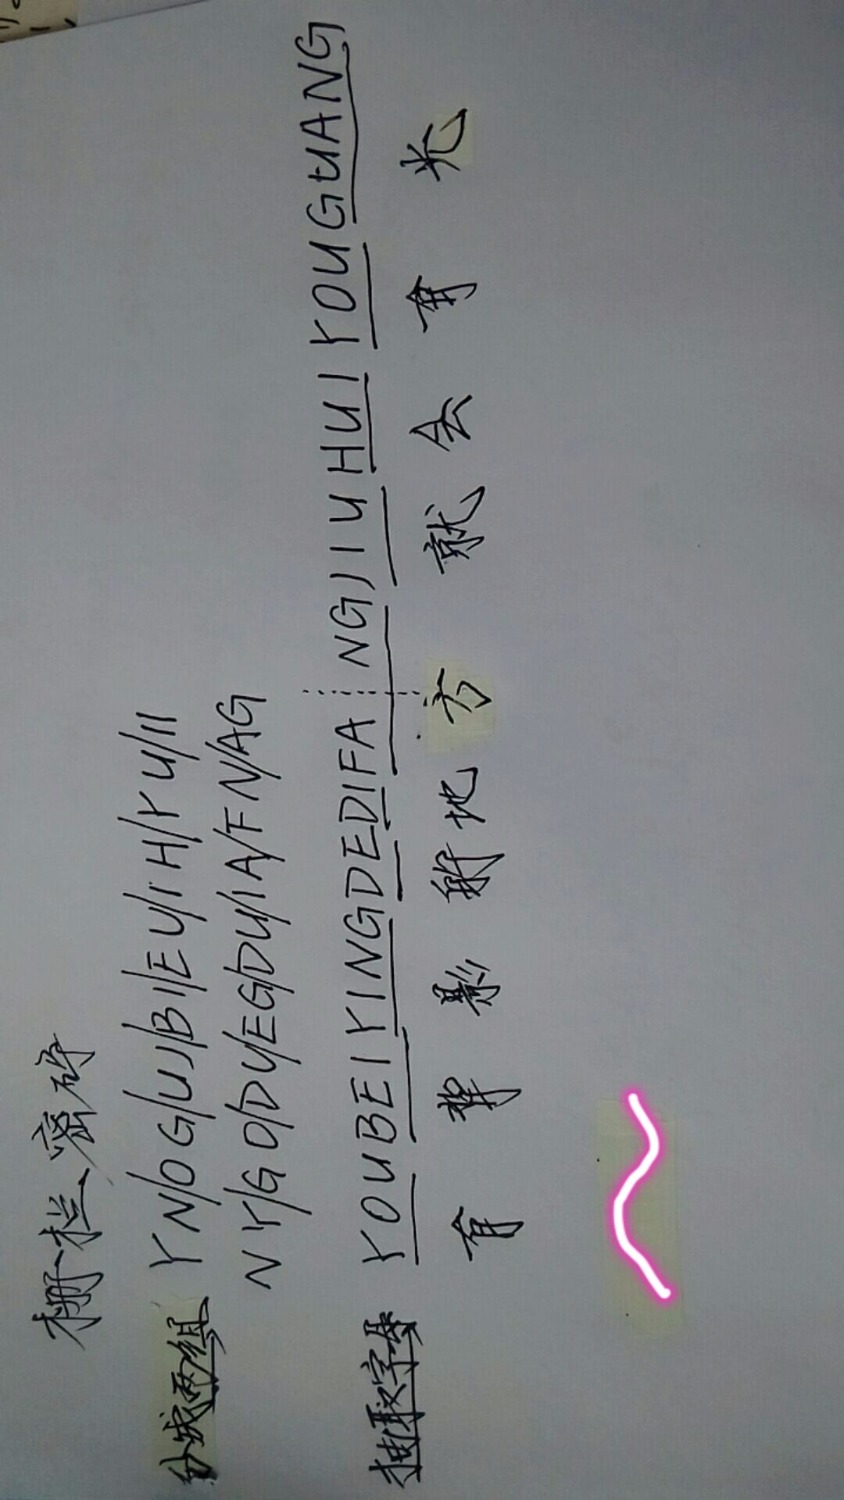 栅栏密码
分成两组 YN/OG/UJ/BI/EU/IH/YU/II
NY/GO/DU/EG/DU/IA/FN/AG
抽取字母 YOUBEIYINGDEDIFANGJIUHUIYOUGUANG
有背影的地方就会有光